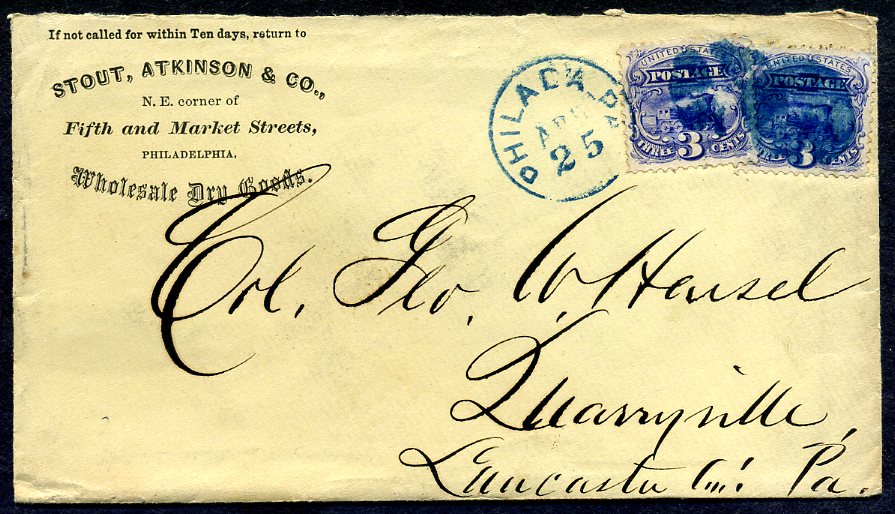 If not called for within Ten days, return to
STOUT, ATKINSON & CO.,
N. E. corner of
Fifth and Market Streets,
PHILADELPHIA,
Wholesale Dry Goods.
PHILAD'A. PA
APR
25
UNITED STATES
POSTAGE
THREE 3 CENTS
UNITED STATES
POSTAGE
THREE 3 CENTS
Col. Geo. W. Hensel
Quarryville,
Lancaster Co. Pa.